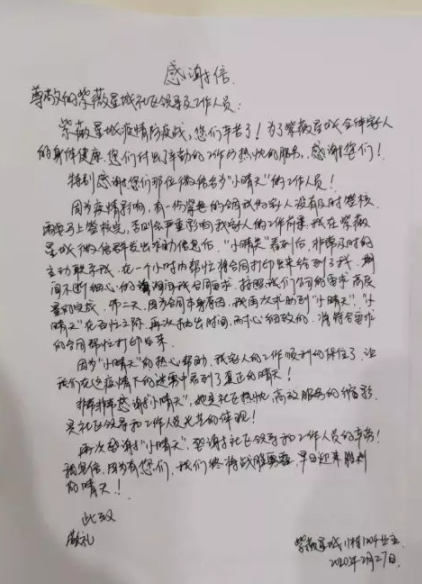 感谢信
尊敬的紫薇星城社区领导及工作人员：
紫薇星城疫情防疫战，您们辛苦了！为了紫薇星城全体家人
的身体健康，您们付出了辛勤的工作与热忱的服务，感谢您们！
特别感谢您们那位微信名为“小晴天”的工作人员！
因为疫情影响，有一份穿着的合同我的家人没有及时签核
需要马上签核完，否则会严重影响我家人的工作前景。我在紫薇
星城微信群发出求助信息后，“小晴天”看到后，非常及时的
主动联系我，在一个小时内帮忙将合同打印出来给到了我。期
间不断细心的 我合同要求，按照我们公司的要求高质
量的完成。第二天，因为合同本身原因，我再次求助到“小晴天”，“小
晴天”在百忙之际，再次抽出时间，耐心细致的，将符合要求
的合同帮忙打印出来。
因为“小晴天”的热心帮助，我家人的工作顺利的保住了，让
我们在这疫情下的迷雾中看到了真正的晴天！
非常非常感谢“小晴天”，她是社区热忱、高效服务的缩影，
是社区领导和工作人员光芒的体现！
再次感谢“小晴天”，感谢社区领导和工作人员的辛劳！
我坚信，因为有您们，我们终将战胜病毒，早日迎来胜利
的晴天！
此致
敬礼
紫薇星城 业主
2020年2月27日